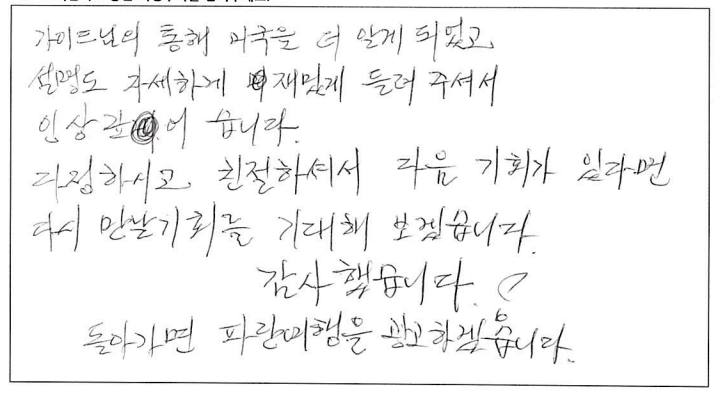 가이드님의 통해 미국을 더 알게 되었고,
설명도 자세하게 재밌게 들려 주셔서
인상깊 어 습니다.
다정하시고, 친절하셔서 다음 기회가 있다면
다시 만날기회를 기대해 보겠습니다.
감사했습니다.
돌아가면 파란여행을 광고하겠습니다.